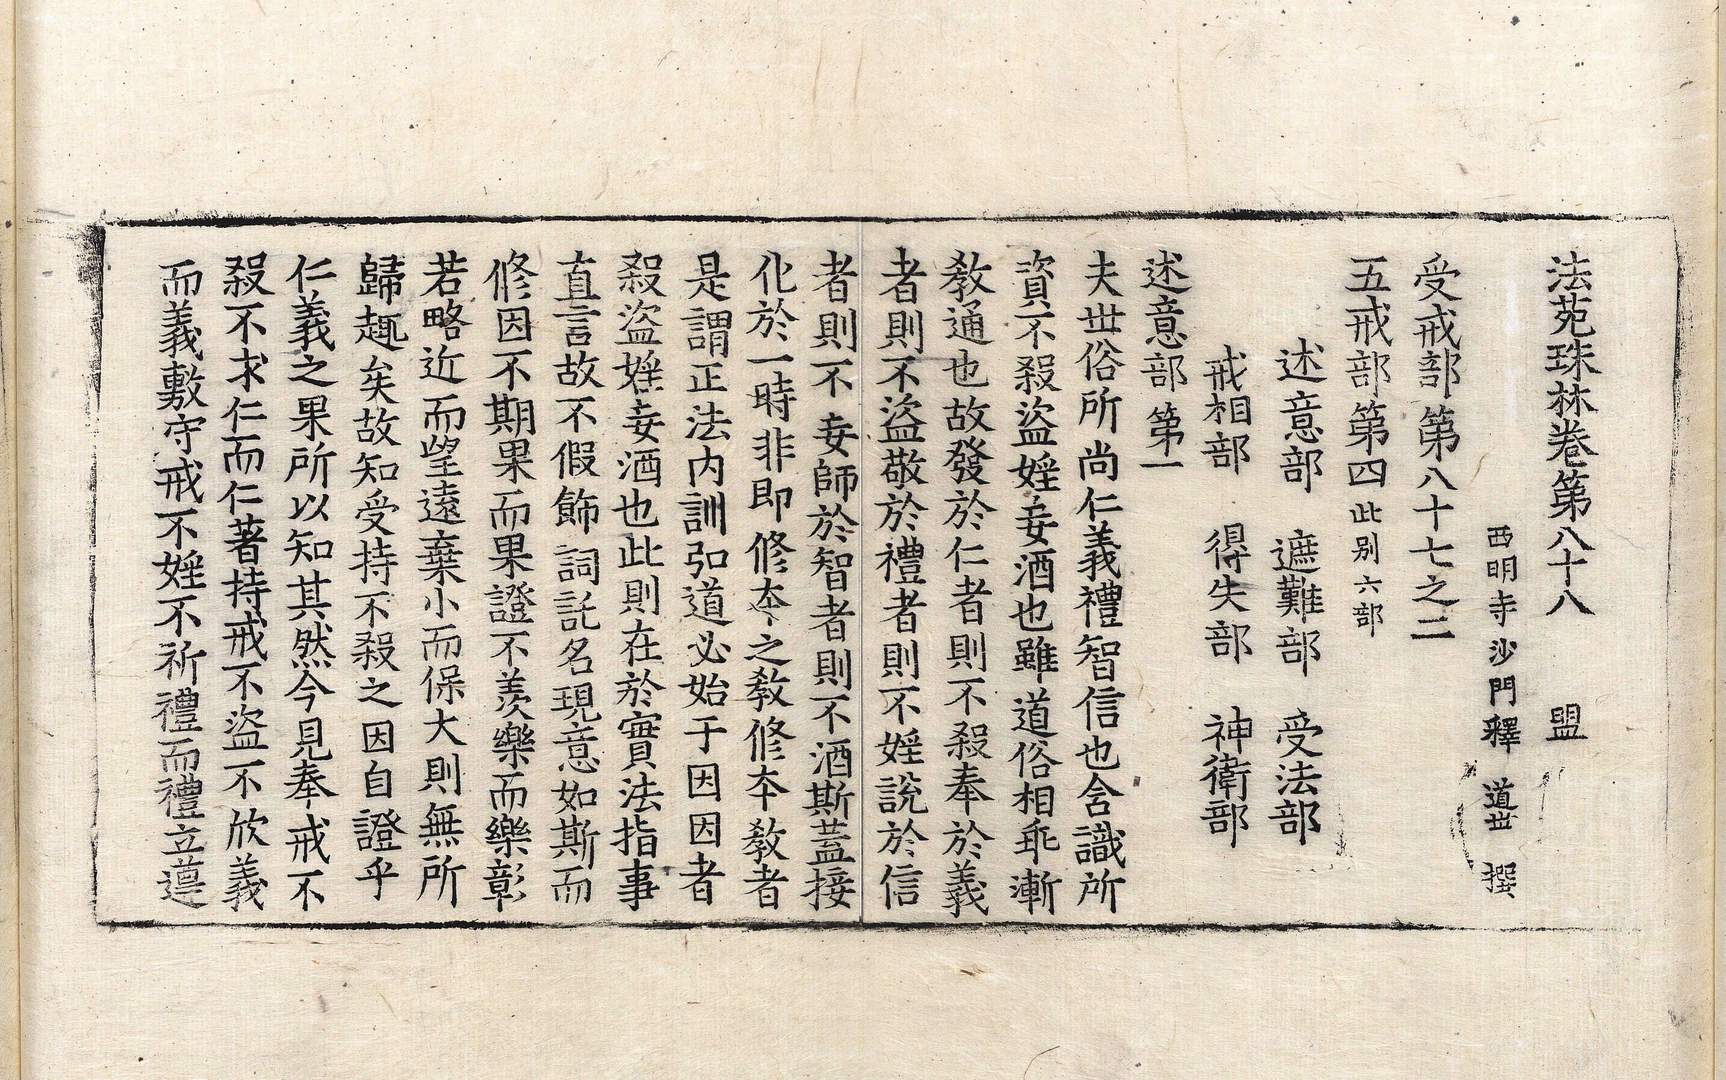 法苑珠林卷第八十八 盟
西明寺沙門釋 道世 撰
受戒部第八十七之二
五戒部第四 此别六部
述意部 遮難部 受法部
戒相部 得失部 神衛部
述意部第一
夫世俗所尚仁義禮智信也含識所
資不殺盜婬妄酒也雖道俗相乖漸
教通也故發於仁者則不殺奉於義
者則不盜敬於禮者則不婬說於信
者則不妄師於智者則不酒斯蓋接
化於一時非即修本之教修本教者
是謂正法內訓弘道必始于因因者
殺盜婬妄酒也此則在於實法指事
直言故不假飾詞託名現意如斯而
修因不期果而果證不羨樂而樂彰
若略近而望遠棄小而保大則無所
歸趣矣故知受持不殺之因自證乎
仁義之果所以知其然今見奉戒不
殺不求仁而仁著持戒不盜不欣義
而義敷守戒不婬不祈禮而禮立遵